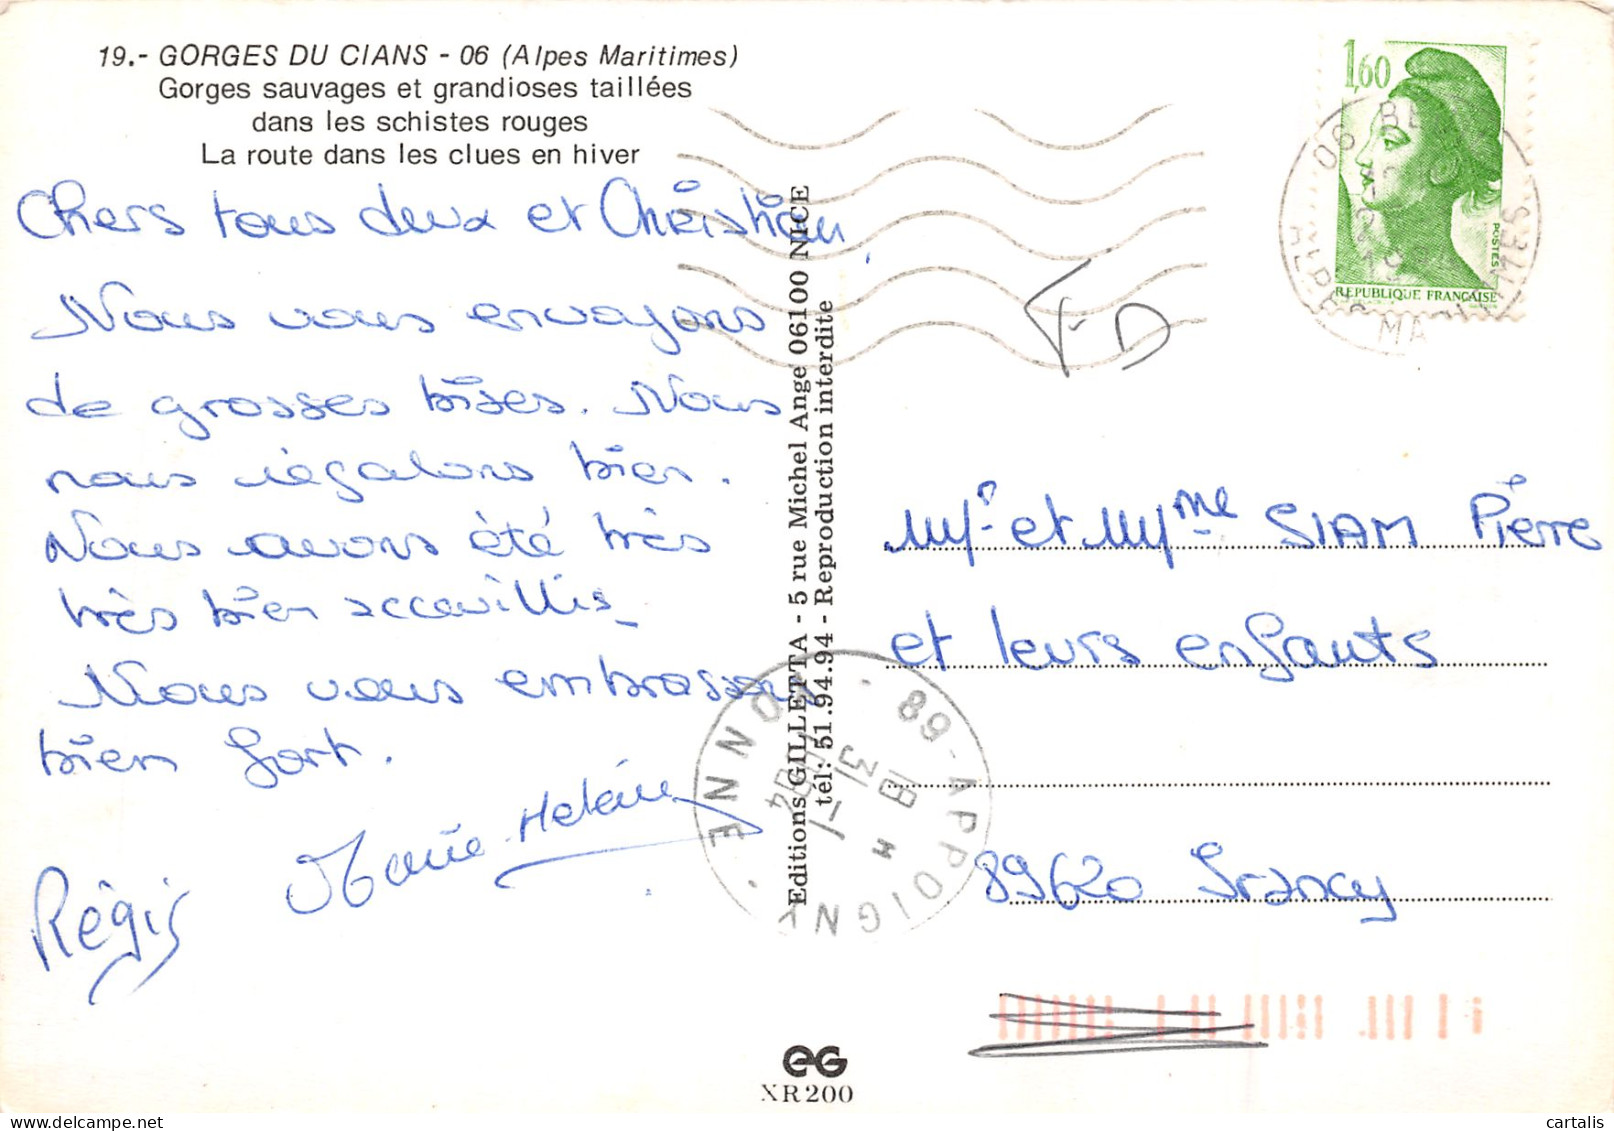 19.- GORGES DU CIANS - 06 (Alpes Maritimes)
Gorges sauvages et grandioses taillées
dans les schistes rouges
La route dans les clues en hiver
Chers tous deux et Christian,
Nous vous envoyons
de grosses bises. Nous
nous régalons bien.
Nous avons été très
très bien accueillis_
Nous vous embrassons
bien fort.
Marie-Hélène
Régis
Editions GILLETTA - 5 rue Michel Ange 06100 NICE
tél: 51.94.94 - Reproduction interdite
1,60
POSTES
REPUBLIQUE FRANÇAISE
06
ALPES MARITIMES
F-D
Mr et Mme SIAM Pierre
et leurs enfants
89620
89 - APPOIGNY
YONNE
18 H
31-1
1984
eG
XR200
cartalis